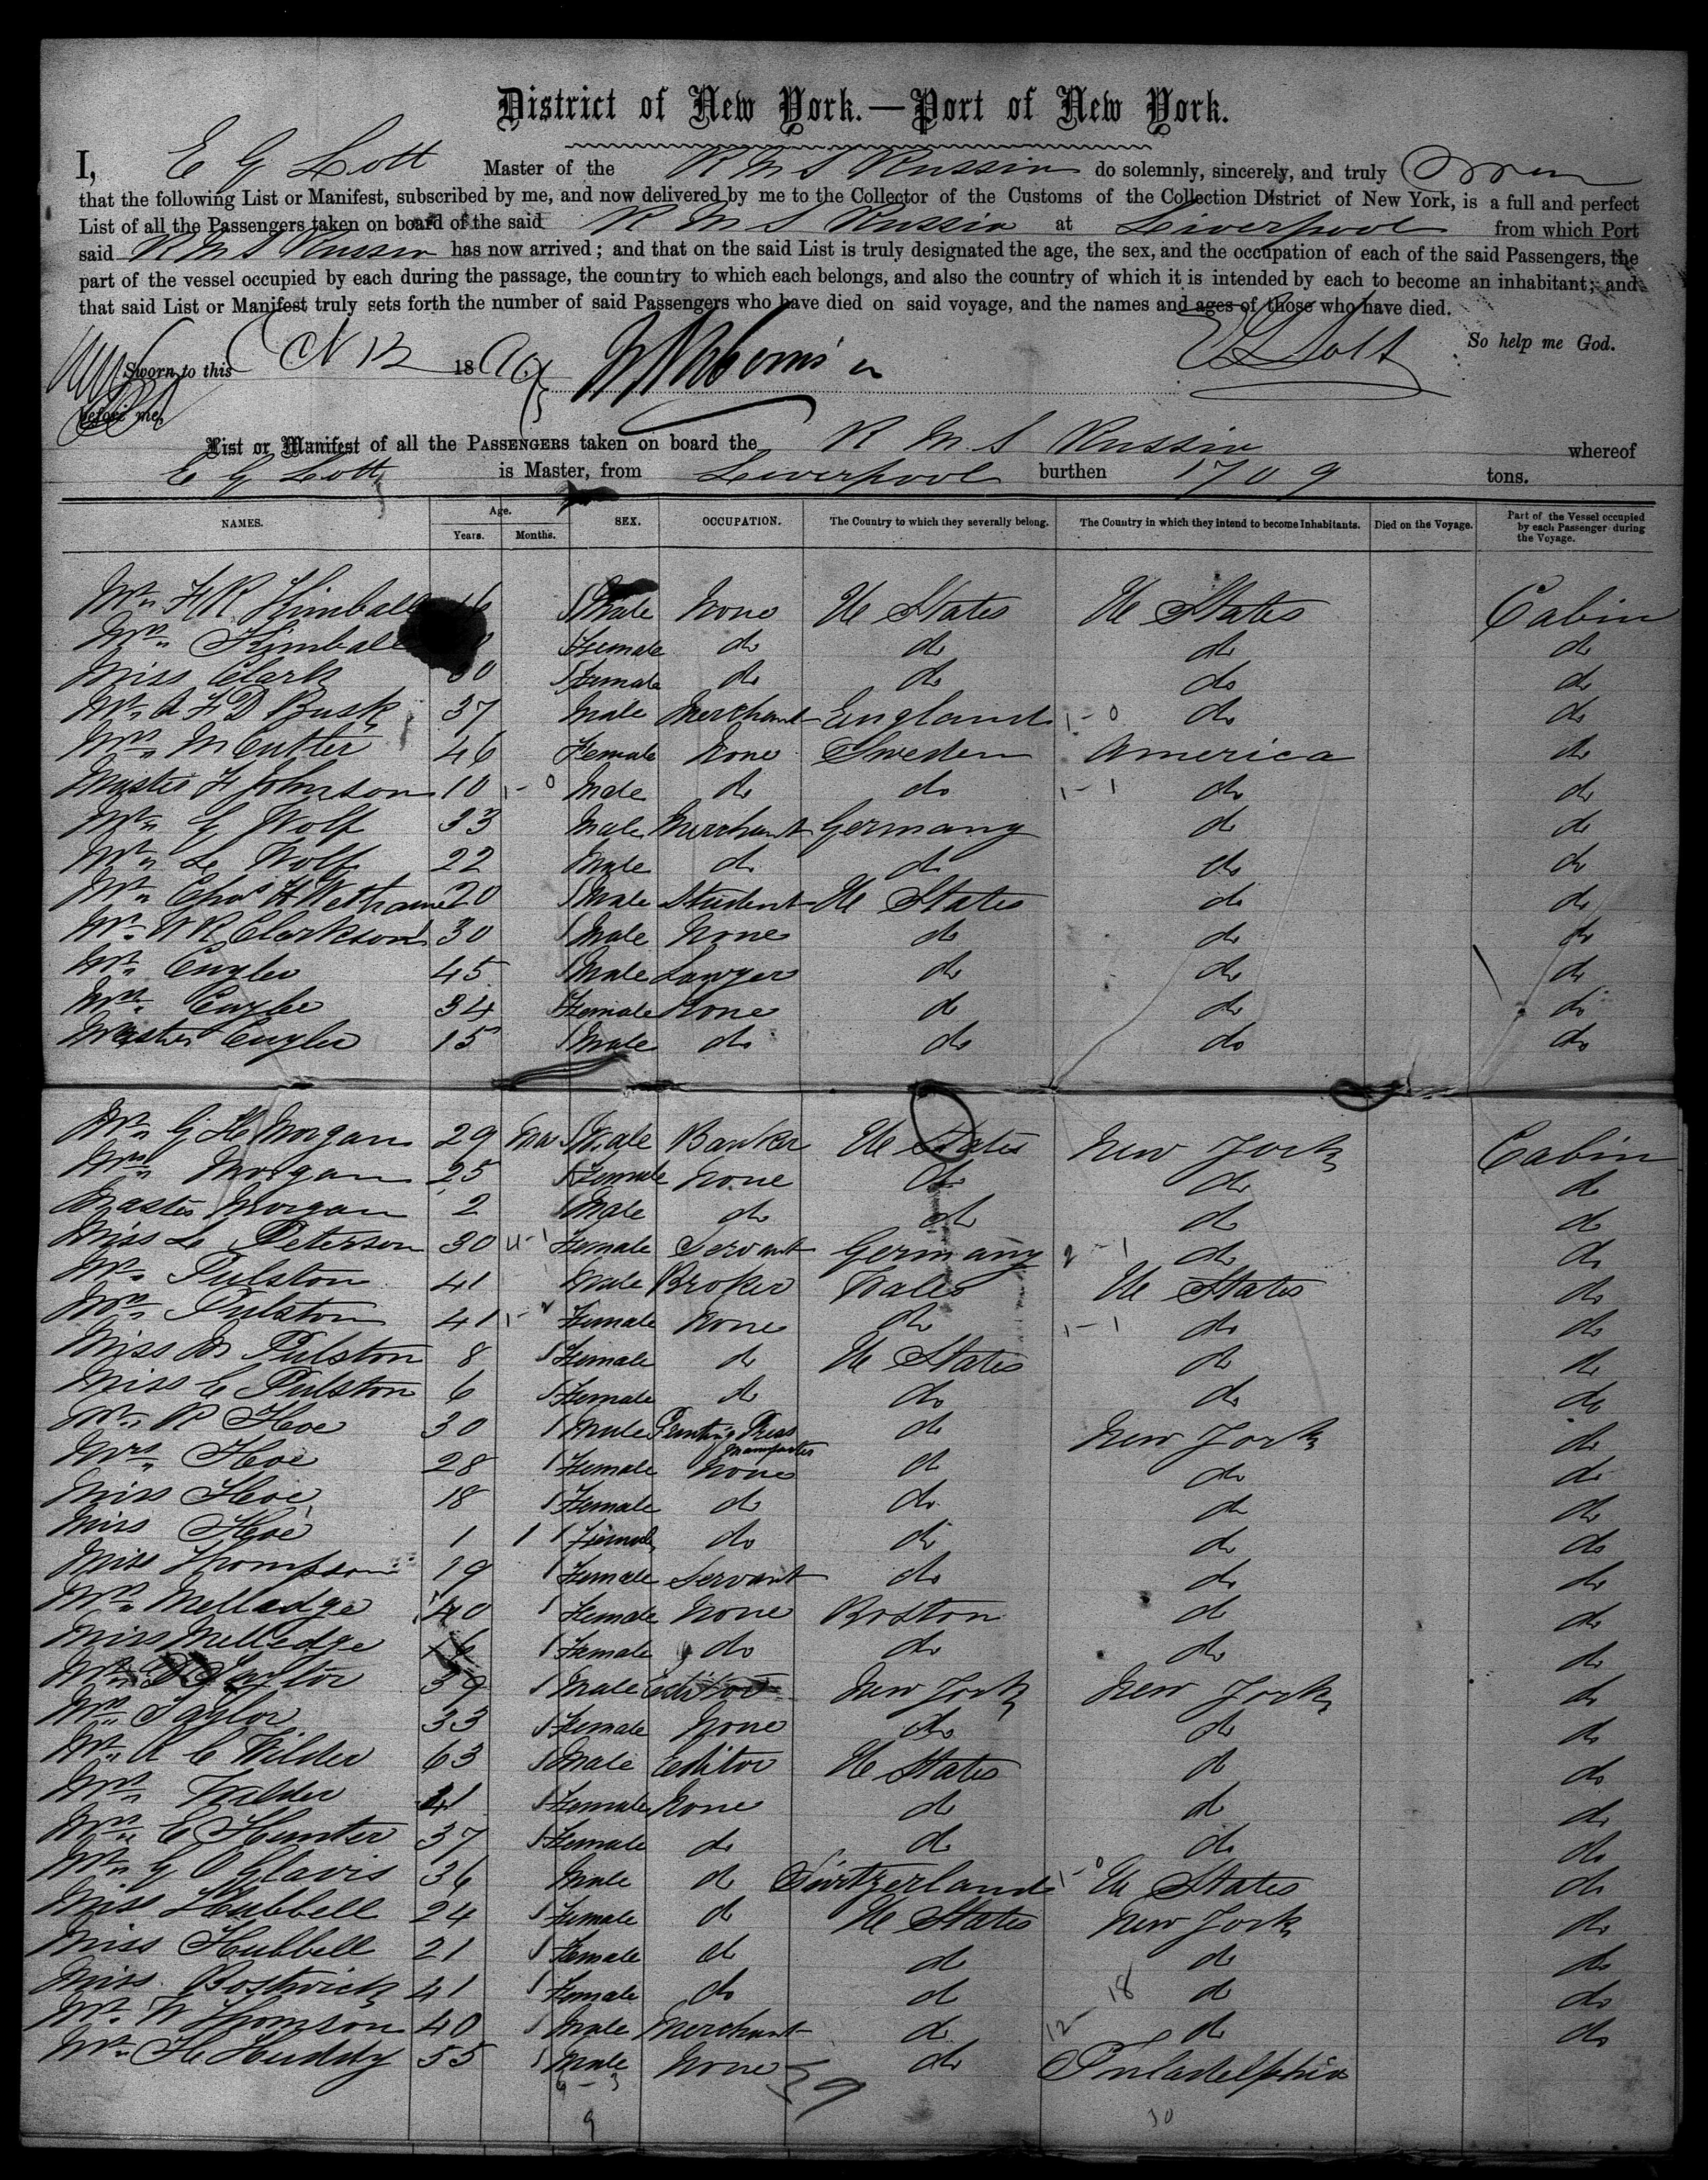 District of New York.—Port of New York.
I, E G Lott Master of the R M S Russia do solemnly, sincerely, and truly
that the following List or Manifest, subscribed by me, and now delivered by me to the Collector of the Customs of the Collection District of New York, is a full and perfect
List of all the Passengers taken on board of the said R M S Russia at Liverpool from which Port
said R M S Russia has now arrived; and that on the said List is truly designated the age, the sex, and the occupation of each of the said Passengers, the
part of the vessel occupied by each during the passage, the country to which each belongs, and also the country of which it is intended by each to become an inhabitant; and
that said List or Manifest truly sets forth the number of said Passengers who have died on said voyage, and the names and ages of those who have died.
So help me God.
Sworn to this 18 E G Lott
before me,
List or Manifest of all the PASSENGERS taken on board the R M S Russia whereof
E G Lott is Master, from Liverpool burthen 1709 tons.
NAMES. Age. Years. Months. SEX. OCCUPATION. The Country to which they severally belong. The Country in which they intend to become Inhabitants. Died on the Voyage. Part of the Vessel occupied by each Passenger during the Voyage.
Mr. F R Kimball 6 Male None U States U States Cabin
Mrs. Kimball Female do do do do
Miss Clark 30 Female do do do do
Mr. A F D Busk 37 Male Merchant England 1-0 do do
Mrs. M Cutter 46 Female None Sweden America do
Master F Johnson 10 1-0 Male do do 1-1 do do
Mr. G Wolf 33 Male Merchant Germany do do
Mr. L Wolf 22 Male do do do do
Mr. Chas H 20 Male Student U States do do
Mr. W R Clarkson 30 Male None do do do
Mr. Cuyler 45 Male Lawyer do do do
Mrs. Cuyler 34 Female None do do do
Master Cuyler 15 Male do do do do
Mr. G H Morgan 29 Male Banker U States New York Cabin
Mrs. Morgan 25 Female None do do do
Master Morgan 2 Male do do do do
Miss L Peterson 30 Female Servant Germany 2-1 do do
Mr. Pulston 41 Male Broker Wales U States do
Mrs. Pulston 41 Female None do 1-1 do do
Miss M Pulston 8 Female do U States do do
Miss E Pulston 6 Female do do do do
Mr. R Hoe 30 Male Printing Press do New York do
Mrs. Hoe 28 Female None do do do
Miss Hoe 18 Female do do do do
Miss Hoe 1 1 Female do do do do
Miss Thompson 19 Female Servant do do do
Mrs. Melledge 40 Female None Boston do do
Miss Melledge 16 Female do do do do
Mr. Taylor 39 Male Editor New York New York do
Mrs. Taylor 33 Female None do do do
Mr. A C Wilder 63 Male Editor U States do do
Mrs. Wilder 41 Female None do do do
Mrs. E Hunter 37 Female do do do do
Mr. G O Glavis 36 Male do Switzerland 1-0 U States do
Miss Hubbell 24 Female do U States New York do
Miss Hubbell 21 Female do do do do
Miss Bostwick 41 Female do do 18 do do
Mr. W Thomson 40 Male Merchant do 12 do do
Mr. H Huddy 55 Male None do Philadelphia
6-3 39
9 30